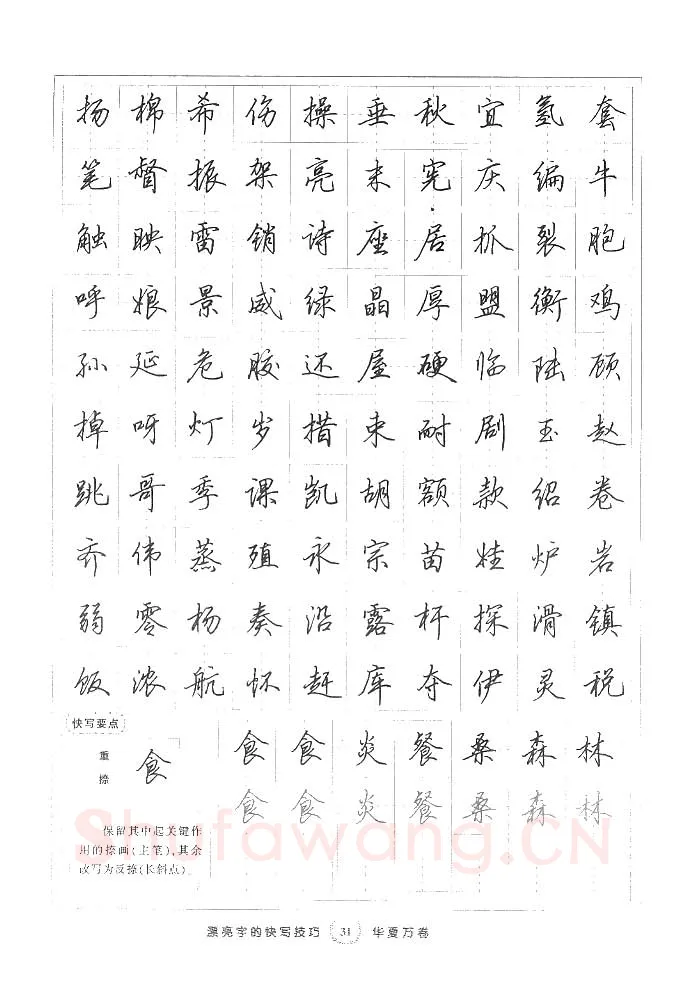 扬 棉 希 伤 操 垂 秋 宜 氢 套
笔 督 振 架 亮 末 宪 庆 编 牛
触 映 雷 销 诗 座 居 抓 裂 胞
呼 娘 景 威 绿 晶 厚 盟 衡 鸡
孙 延 危 胶 还 屋 硬 临 陆 顾
掉 呀 灯 岁 措 束 耐 剧 玉 赵
跳 哥 季 课 凯 胡 额 款 绍 卷
齐 伟 蒸 殖 永 宗 苗 炉 岩
弱 零 杨 奏 沿 露 杆 探 滑 镇
饭 浓 航 怀 赶 库 夺 伊 灵 税
快写要点
重捺
食
食 食 炎 餐 桑 森 林
食 食 炎 餐 桑 森 林
保留其中起关键作
用的捺画(主笔),其余
改写为反捺(长斜点)。
Shufawang.CN
漂亮字的快写技巧 31 华夏万卷